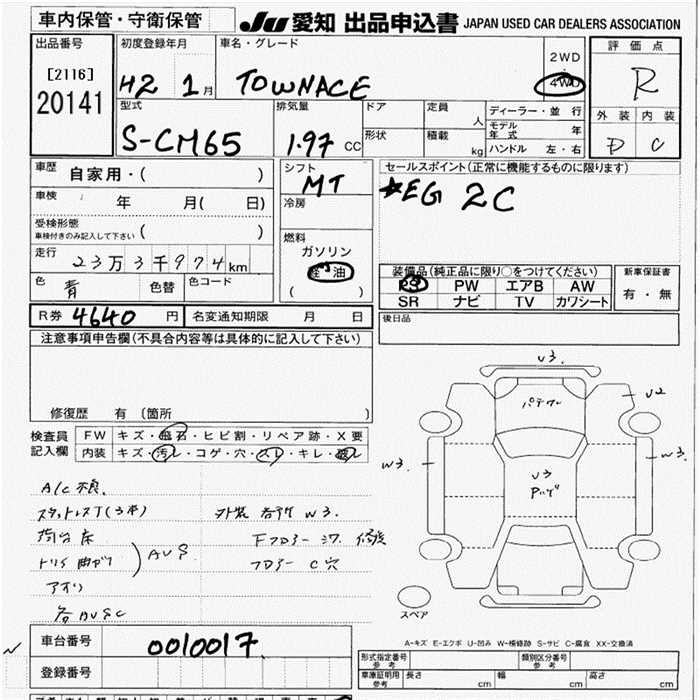 車内保管・守衛保管
JU 愛知 出品申込書 JAPAN USED CAR DEALERS ASSOCIATION
出品番号
[2116]
20141
初度登録年月
H2 1月
車名・グレード
TOWNACE
2WD
・
4WD
評価点
R
外装 内装
D C
型式
S-CM65
排気量
1.97 CC
ドア
形状
定員
人
積載
kg
ディーラー・並行
モデル年式 年
ハンドル 左・右
車歴
自家用・( )
車検
年 月( 日)
受検形態
車検付きのみ記入して下さい ( )
走行
23万3千974km
色
青
色替
色コード
シフト
MT
冷房
燃料
ガソリン
軽油
( )
セールスポイント(正常に機能するものに限ります)
☆EG 2C
装備品(純正品に限り○をつけてください)
PS PW エアB AW
SR ナビ TV カワシート
新車保証書
有・無
後日品
R券 4640 円
名変通知期限 月 日
注意事項申告欄(不具合内容等は具体的に記入して下さい)
修復歴 有 〔箇所 〕
検査員
記入欄
FW キズ・飛石・ヒビ割・リペア跡・X要
内装 キズ・汚レ・コゲ・穴・スレ・キレ・破レ
A/C不良、
スタットレスT(3本)
荷台床
トリイ曲がり
アオリ
AUS
各AUSC
外装 各所 W3.
下フロアー シワ 修復
フロアー C穴
U3.
パテワレ
U2
W3.
U3
Pハゲ
W3.
スペア
A-キズ E-エクボ U-凹み W-補修跡 S-サビ C-腐食 XX-交換済
車台番号
0010017
登録番号
型式指定番号
参考
類別区分番号
参考
車庫証明用
参考
長さ cm
幅 cm
高さ cm